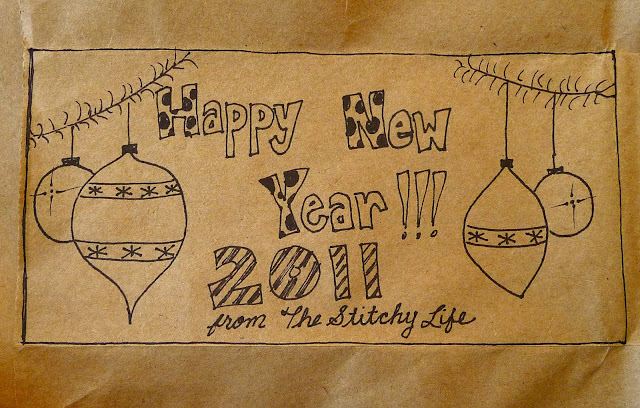 Happy New
Year!!!
2011
from The Stitchy Life